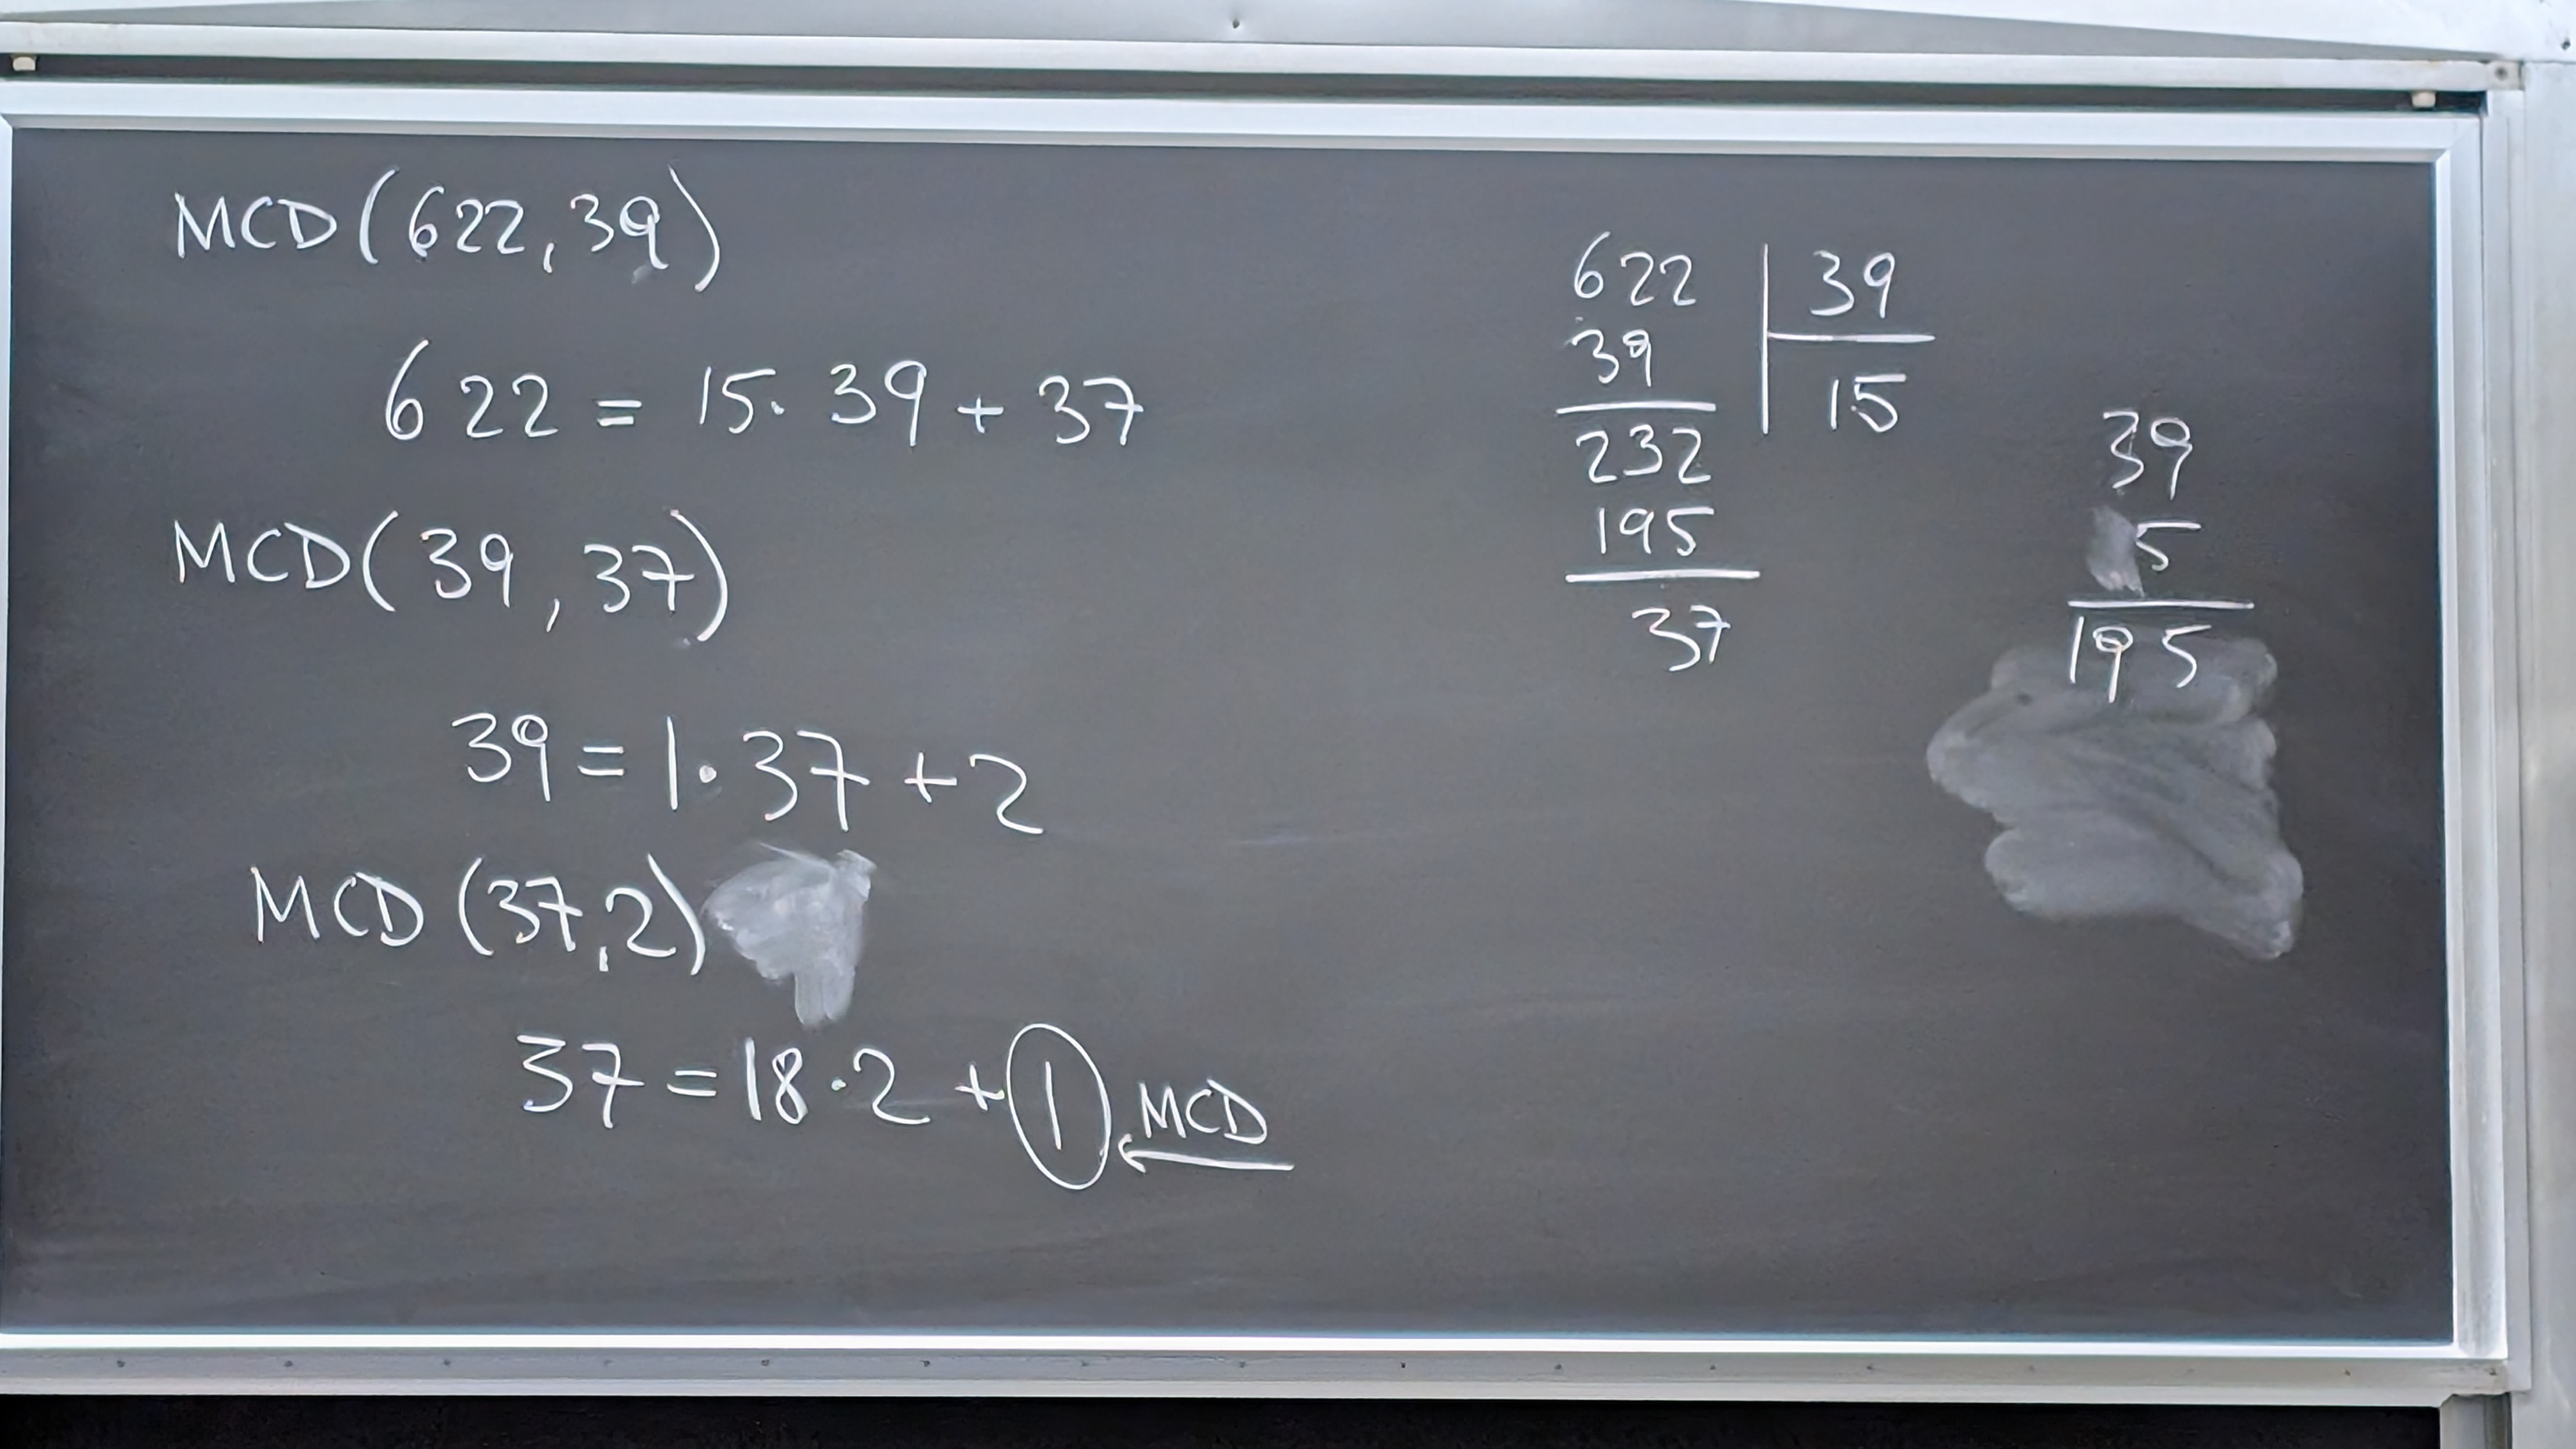 MCD(622,39)
622 = 15·39+37
MCD(39,37)
39=1·37+2
MCD(37,2)
37=18·2+1 MCD
622 39
39 15
232
195
37
39
5
195